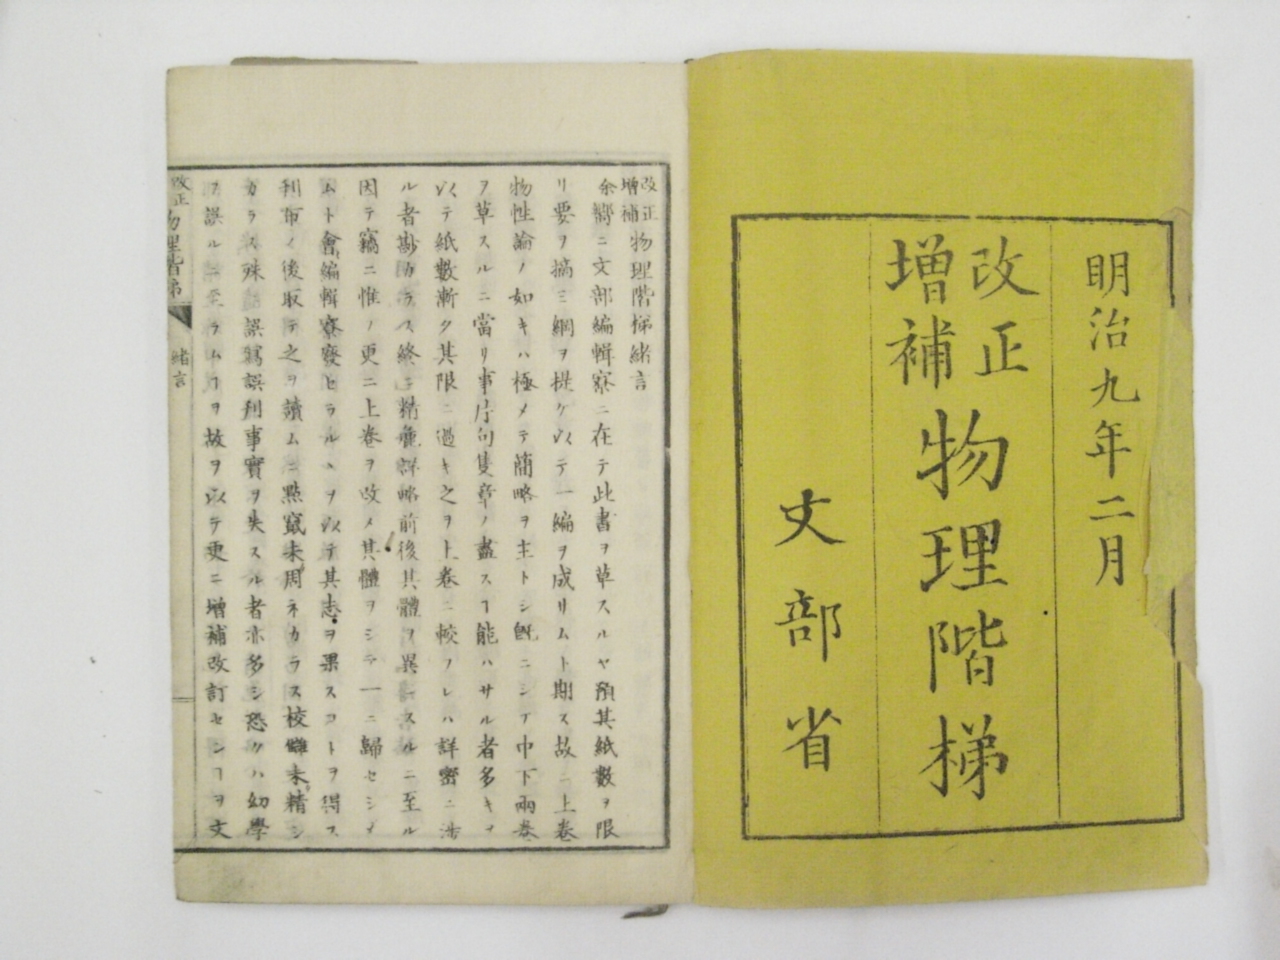 明治九年二月
改正
增補
物理階梯
文部省
改正
增補
物理階梯緒言
余嚮ニ文部編輯寮ニ在テ此書ヲ草スルヤ預其紙數ヲ限
リ要ヲ摘ミ綱ヲ提ケ以テ一編ヲ成サムト期ス故ニ上卷
物性論ノ如キハ極メテ簡略ヲ主トシ既ニシテ中下兩卷
ヲ草スルニ當リ事片句隻章ノ盡スヿ能ハサル者多キヲ
以テ紙數漸ク其限ニ過キ之ヲ上卷ニ較フレハ詳密ニ涉
ル者尠カラス終ニ精麁詳略前後其體ヲ異ニスルニ至ル
因テ竊ニ惟ノ更ニ上卷ヲ改メ其體ヲシテ一ニ歸セシメ
ムト會編輯寮廢セラルヽヲ以テ其志ヲ果スコトヲ得ス
刊布ノ後取テ之ヲ讀ムニ點竄未周ネカラス校讎未精シ
カラス殊 誤寫誤刊事實ヲ失スル者亦多シ恐クハ幼學
ヲ誤ルニ至ラムヿヲ故ヲ以テ更ニ增補改訂センヿヲ文
改正
物理階梯
緒言